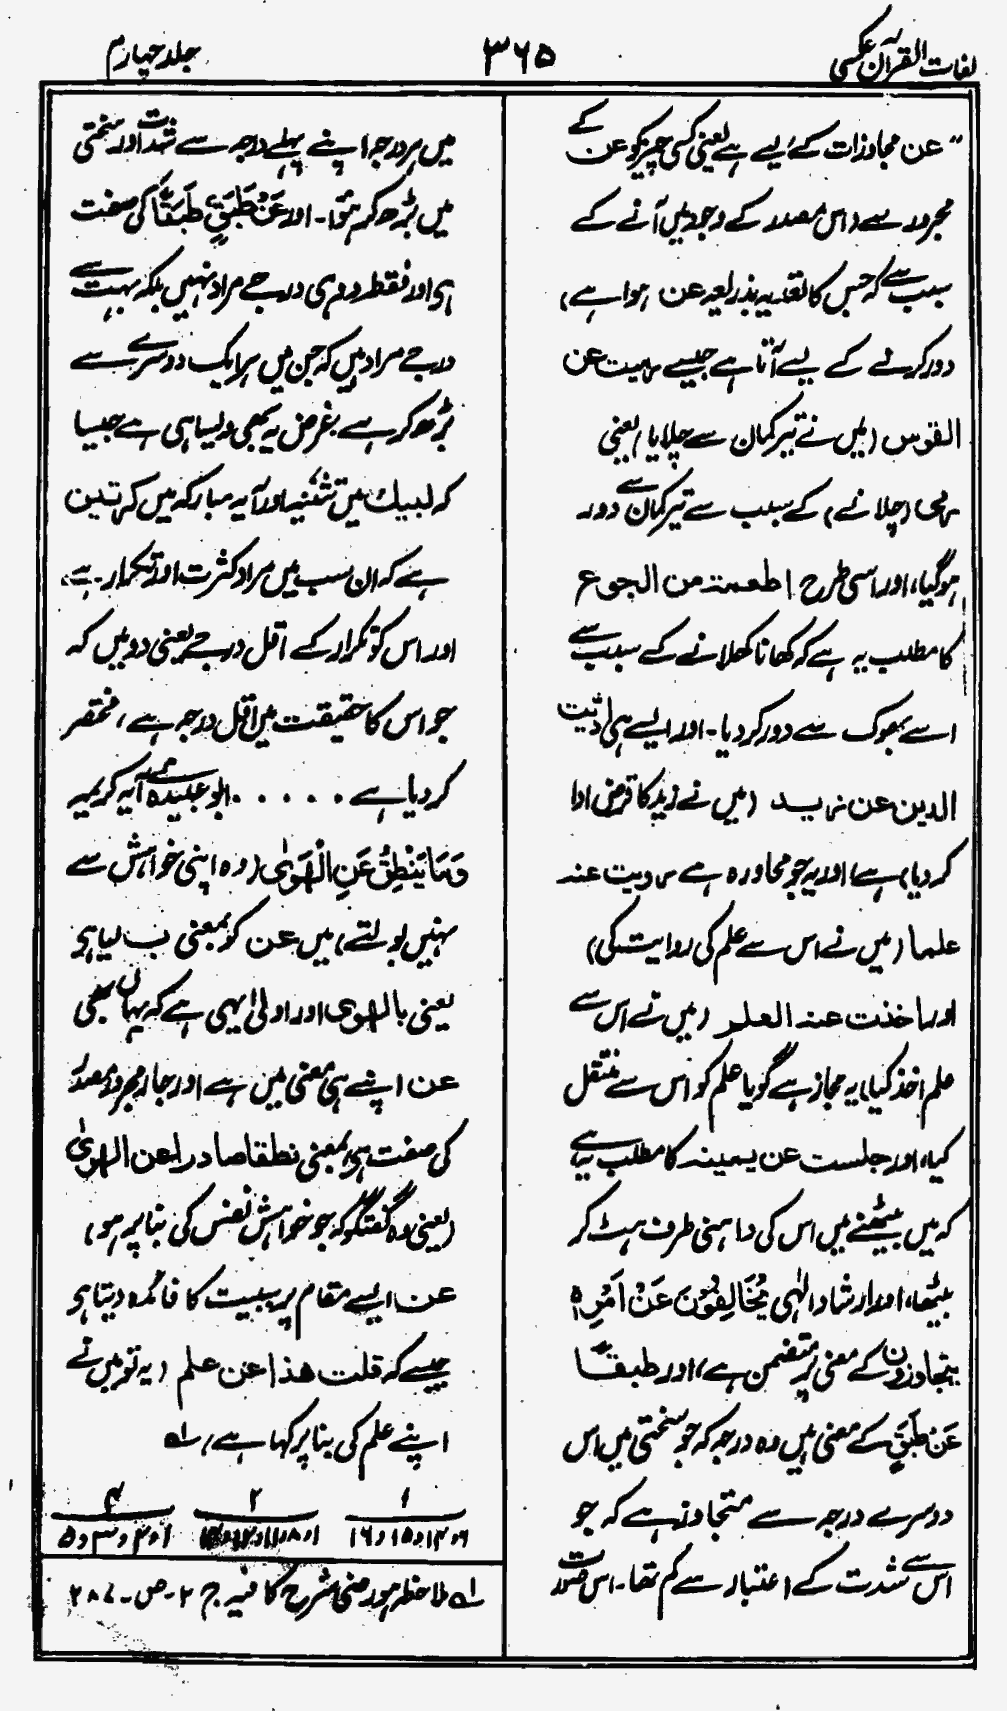 لغات القرآن عکسی
۳۶۵
جلد چہارم
"عن مجاوزات کے لیے ہے یعنی کسی چیز کو عن کے
مجرور سے (اس مصدر کے وجود میں آنے کے
سبب سے کہ جس کا تعدیہ بذریعہ عن ہوا ہے)
دور کرنے کے لیے آتا ہے جیسے رمیت عن
القوس (میں نے تیر کمان سے چلایا) یعنی
رمی (چلانے) کے سبب سے تیر کمان سے دور
ہو گیا، اور اسی طرح اطعمته من الجوع
کا مطلب یہ ہے کہ کھانا کھلانے کے سبب سے
اسے بھوک سے دور کر دیا۔ اور ایسے ہی ادّیت
الدین عن زید (میں نے زید کا قرض ادا
کر دیا) ہے، اور یہ جو محاورہ ہے رویت عنہ
علما (میں نے اس سے علم کی روایت کی)
اور اخذت عنہ العلم (میں نے اس سے
علم اخذ کیا) یہ مجاز ہے گویا علم کو اس سے منتقل
کیا، اور جلست عن یمینہ کا مطلب یہ ہے
کہ میں بیٹھنے میں اس کی داہنی طرف ہٹ کر
بیٹھا، اور ارشاد الٰہی یُخَالِفُوْنَ عَنْ اَمْرِہٖ
یتجاوزون کے معنی پر متضمن ہے، اور طبقًا
عَنْ طَبَقٍ کے معنی ہیں وہ درجہ کہ جو سختی میں اس
دوسرے درجہ سے متجاوز ہے کہ جو
اس سے شدت کے اعتبار سے کم تھا۔ اس صورت
میں ہر درجہ اپنے پہلے درجہ سے شدت اور سختی
میں بڑھ کر ہوا۔ اور عَنْ طَبَقٍ طَبَقًا کی صفت
ہے اور فقط دو ہی درجے مراد نہیں بلکہ بہت سے
درجے مراد ہیں کہ جن میں ہر ایک دوسرے سے
بڑھ کر ہے، غرض یہ بھی ویسا ہی ہے جیسا
کہ لبیك میں تثنیہ اور آیہ مبارکہ میں کرتین
ہے کہ ان سب میں مراد کثرت اور تکرار ہے،
اور اس کو تکرار کے اقل درجے یعنی دو میں کہ
جو اس کا حقیقت میں اقل درجہ ہے، مختصر
کر دیا ہے ..... ابو عبیدہ نے آیہ کریمہ
وَمَا یَنْطِقُ عَنِ الْھَوٰی (وہ اپنی خواہش سے
نہیں بولتے) میں عن کو بمعنی ب لیا ہے
یعنی بالھوی اور اولیٰ یہی ہے کہ یہاں بھی
عن اپنے ہی معنی میں ہے اور جار مجرور مصدر
کی صفت ہے بمعنی نطقا صادرا عن الھویٰ
(یعنی وہ گفتگو کہ جو خواہش نفس کی بنا پر ہو)
عن ایسے مقام پر سببیت کا فائدہ دیتا ہے
جیسے کہ قلت ھذا عن علم (یہ تو میں نے
اپنے علم کی بنا پر کہا ہے) لہ
۱ ۲ ۴
۱۶و۱۵و۱۴و۹
۱و۴و۳و۵
لہ ملاحظہ ہو رضی شرح کافیہ ج ۲۔ ص۔ ۲۸۷